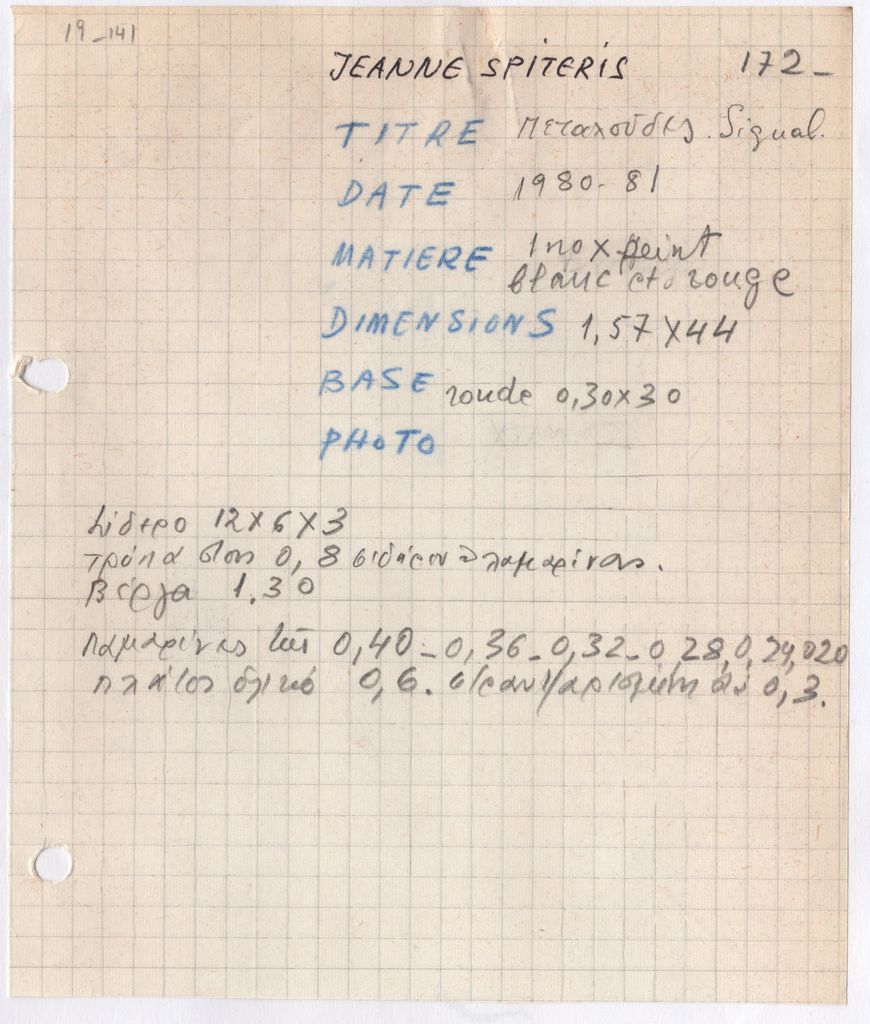 19-141
JEANNE SPITERIS 172-
TITRE Πεταλούδες. Signal.
DATE 1980-81
MATIERE Inox peint
blanc et rouge
DIMENSIONS 1,57 X 44
BASE ronde 0,30 x 30
PHOTO
Σίδερο 12 X 6 X 3
0, 8 σιδήρου λαμαρίνας.
Βέργα 1.30
λαμαρίνες 0,40 - 0,36 - 0,32 - 0,28, 0,24, 020
πλάτος ολικό 0,6. 0,3.